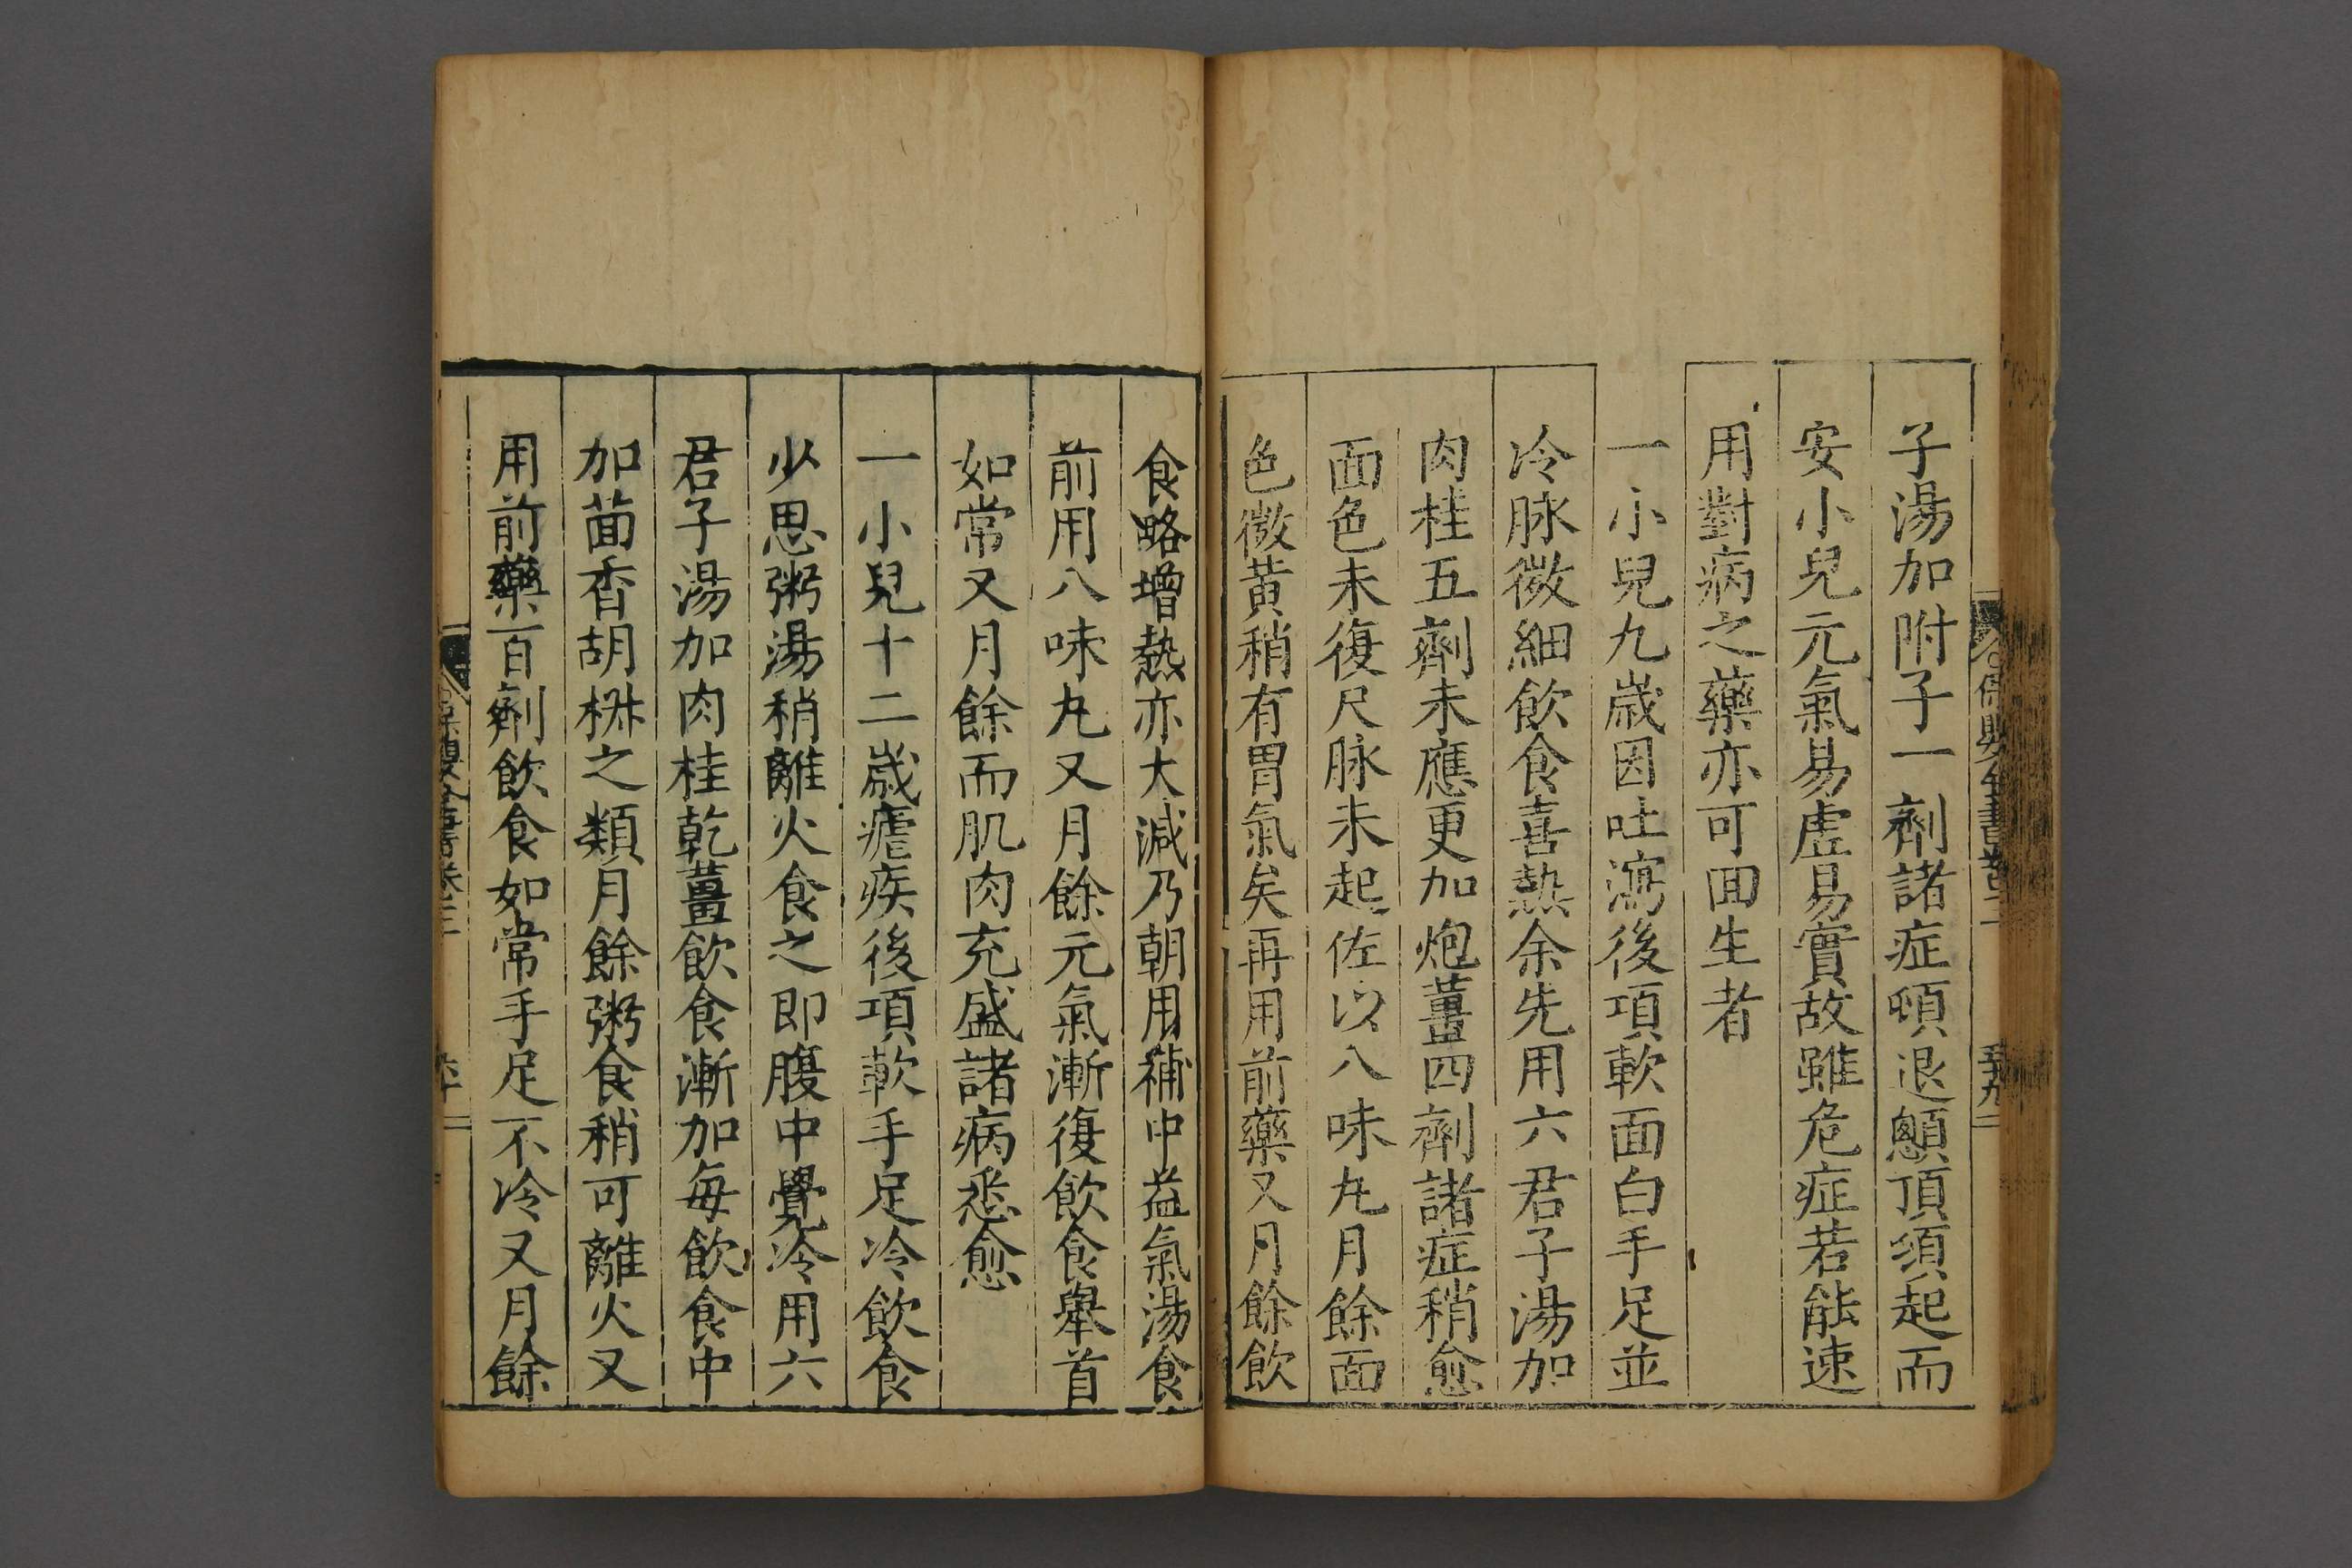 子湯加附子一劑諸症頓退顱頂須起而
安小兒元氣易虛易實故雖危症若能速
用對病之藥亦可回生者
一小兒九歲因吐瀉後項軟面白手足並
冷脉微細飲食喜熱余先用六君子湯加
肉桂五劑未應更加炮薑四劑諸症稍愈
面色未復尺脉未起佐以八味丸月餘面
色微黃稍有胃氣矣再用前藥又月餘飲
食略增熱亦大減乃朝用補中益氣湯食
前用八味丸又月餘元氣漸復飲食舉首
如常又月餘而肌肉充盛諸病悉愈
一小兒十二歲瘧疾後項軟手足冷飲食
少思粥湯稍離火食之即腹中覺冷用六
君子湯加肉桂乾薑飲食漸加每飲食中
加茴香胡椒之類月餘粥食稍可離火又
用前藥百劑飲食如常手足不冷又月餘